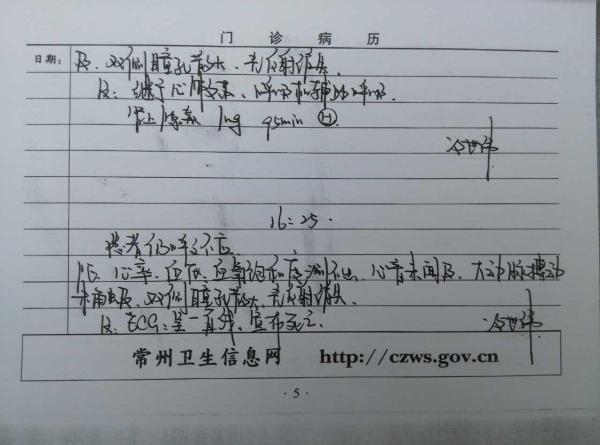 门诊病历
日期:
及、双侧瞳孔散大、光反射消失、
R: 继予心肺复苏、呼吸机辅助呼吸、
肾上腺素 1mg q5min
16:25.
患者仍呼之不应
心率、血压、血氧饱和度测不出、心音未闻及、大动脉搏动
未触及、双侧瞳孔散大、光反射消失、
R: ECG: 呈一直线、宣布死亡
常州卫生信息网 http://czws.gov.cn
·5·